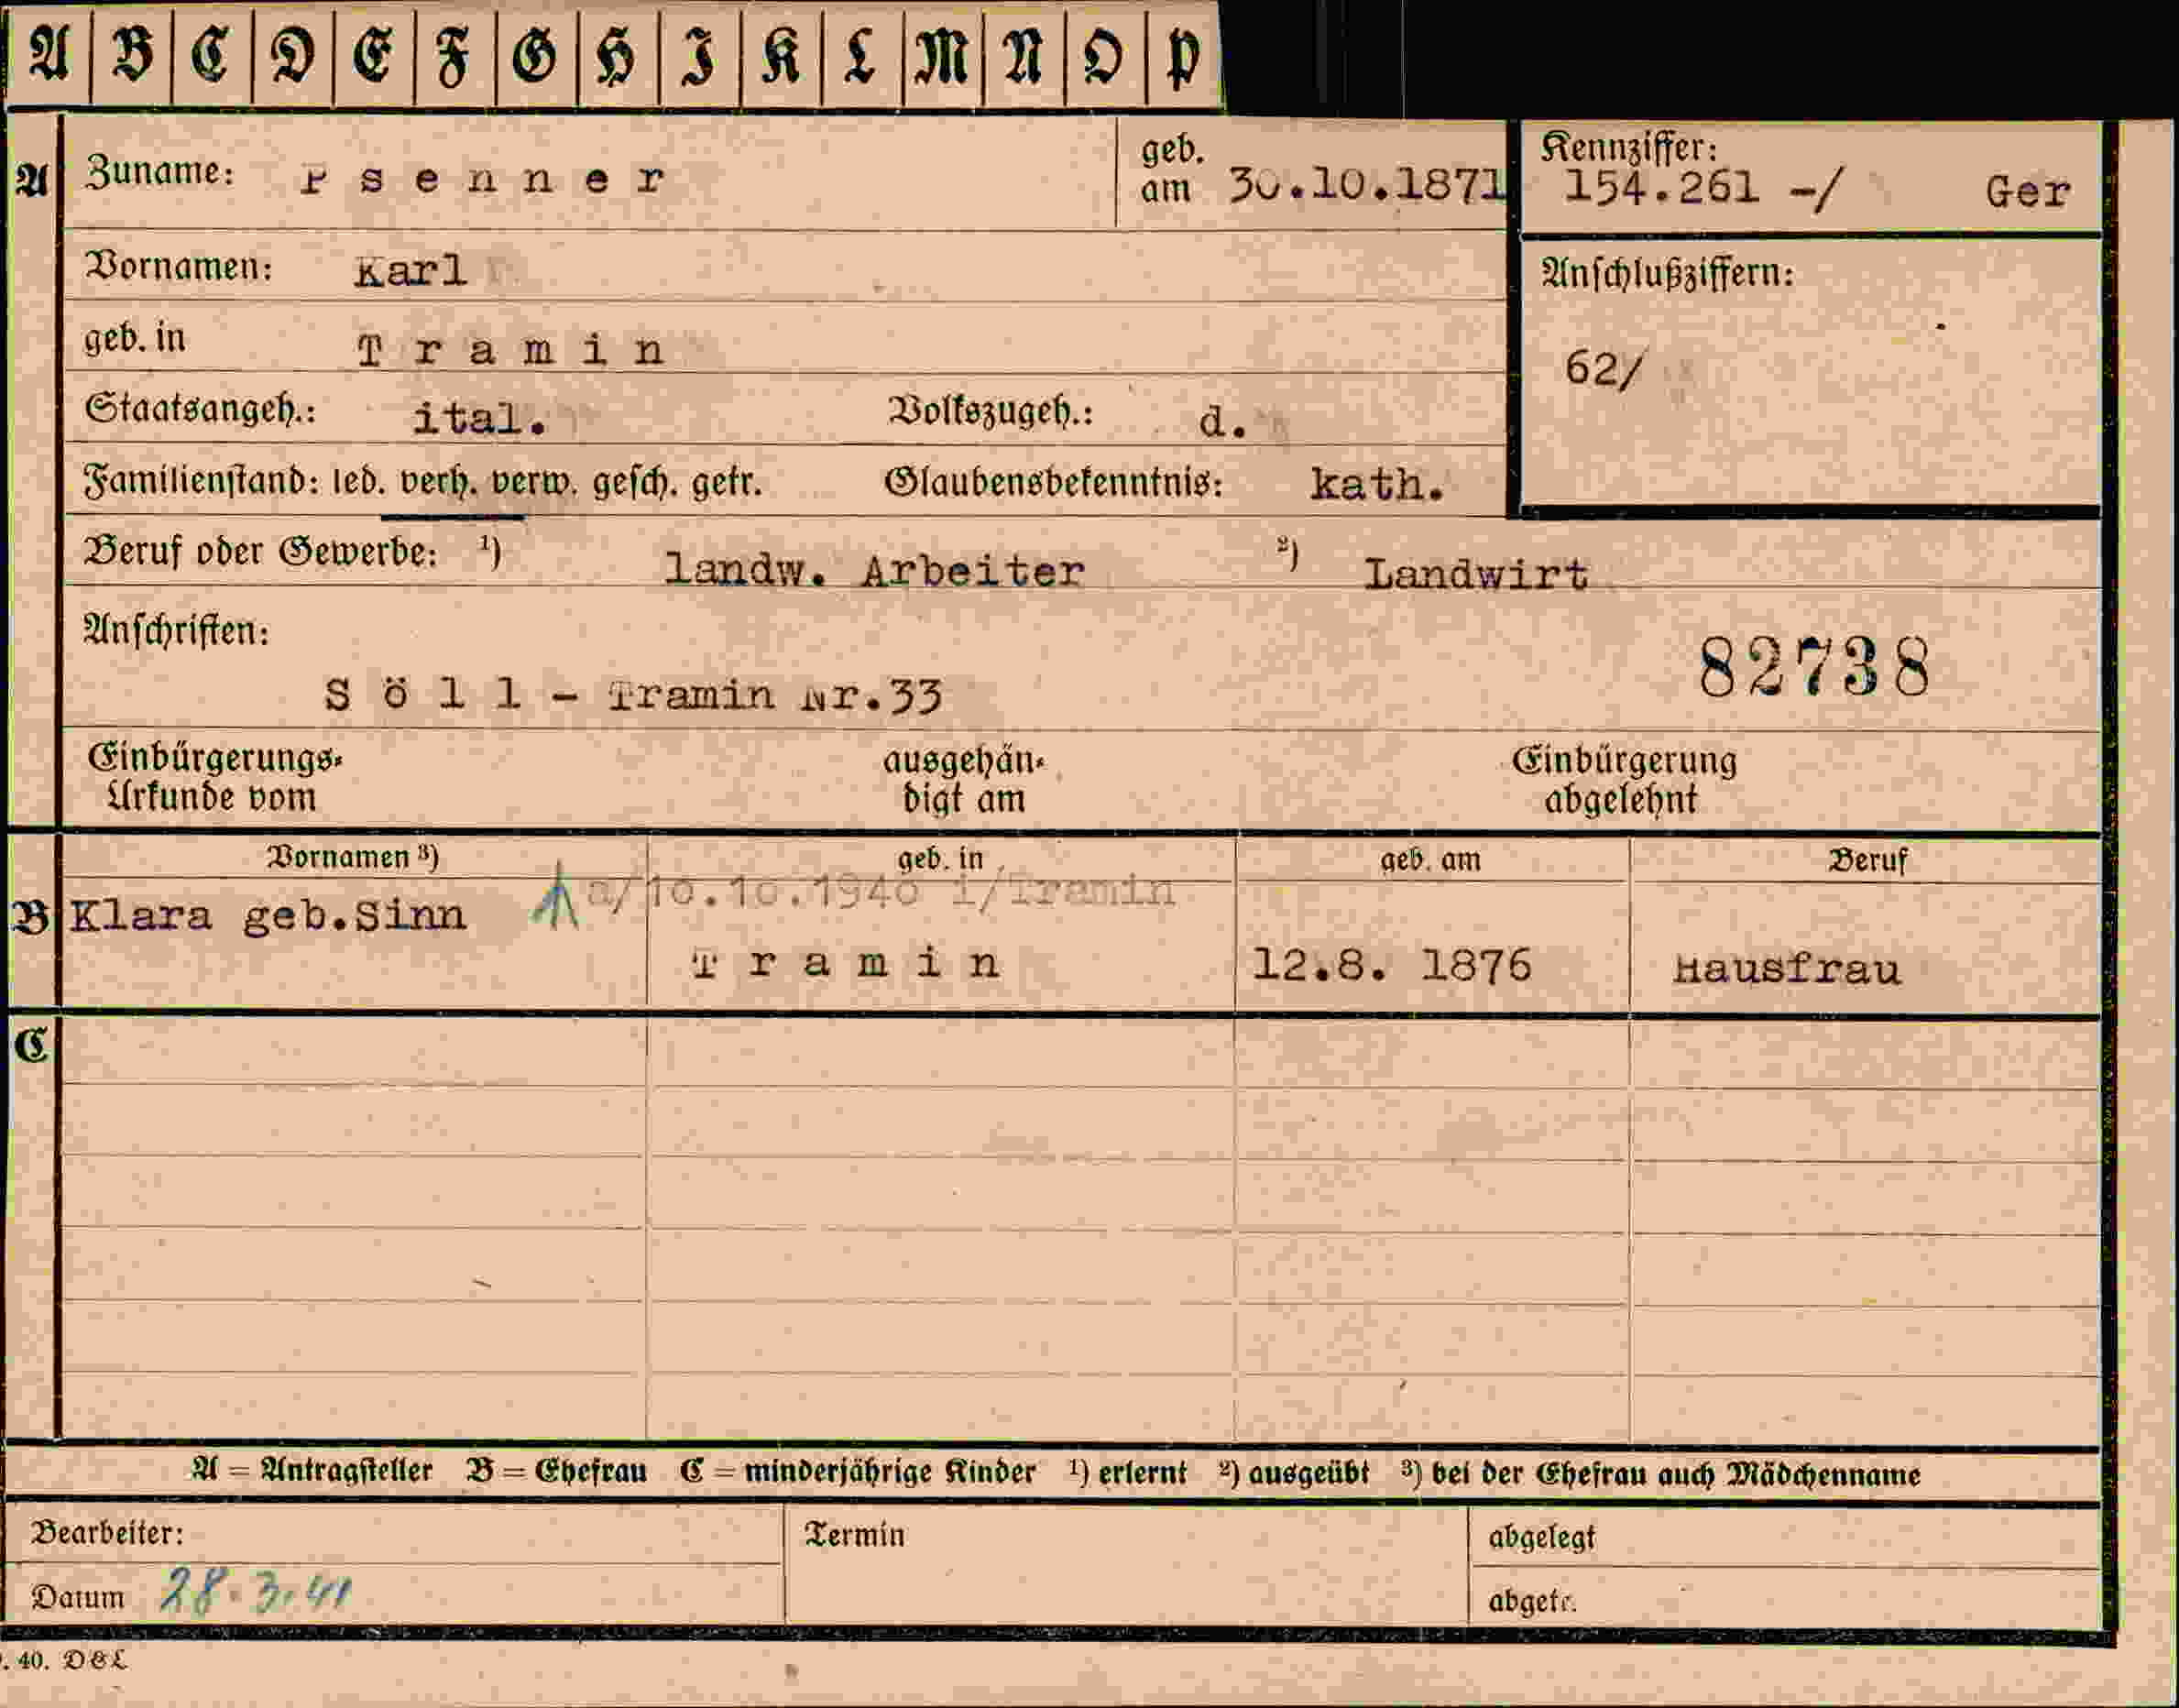 A B C D E F G H I K L M N O P
A Zuname: Psenner geb. am 30.10.1871 Kennziffer: 154.261 -/ Ger
Vornamen: Karl Anschlußziffern:
geb. in Tramin 62/
Staatsangeh.: ital. Volkszugeh.: d.
Familienstand: led. verh. verw. gesch. getr. Glaubensbekenntnis: kath.
Beruf oder Gewerbe: ¹) landw. Arbeiter ²) Landwirt
Anschriften:
82738
Söll - Tramin Nr.33
Einbürgerungs- ausgehän- Einbürgerung
Urkunde vom digt am abgelehnt
Vornamen ³) geb. in geb. am Beruf
10.10.1940 i/Tramin
B Klara geb.Sinn
Tramin 12.8. 1876 Hausfrau
C
A = Antragsteller B = Ehefrau C = minderjährige Kinder ¹) erlernt ²) ausgeübt ³) bei der Ehefrau auch Mädchenname
Bearbeiter: Termin abgelegt
Datum 28.3.41 abgetr.
. 40. D&L